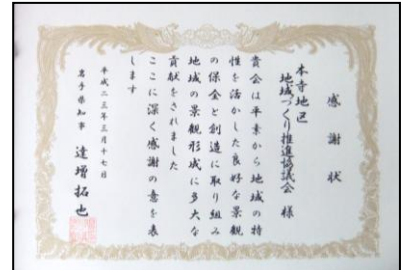 感謝状
本寺地区
地域づくり推進協議会 様
貴会は平素から地域の特
性を活かした良好な景観
の保全と創造に取り組み
地域の景観形成に多大な
貢献をされました
ここに深く感謝の意を表
します
平成二三年三月十七日
岩手県知事 達増拓也